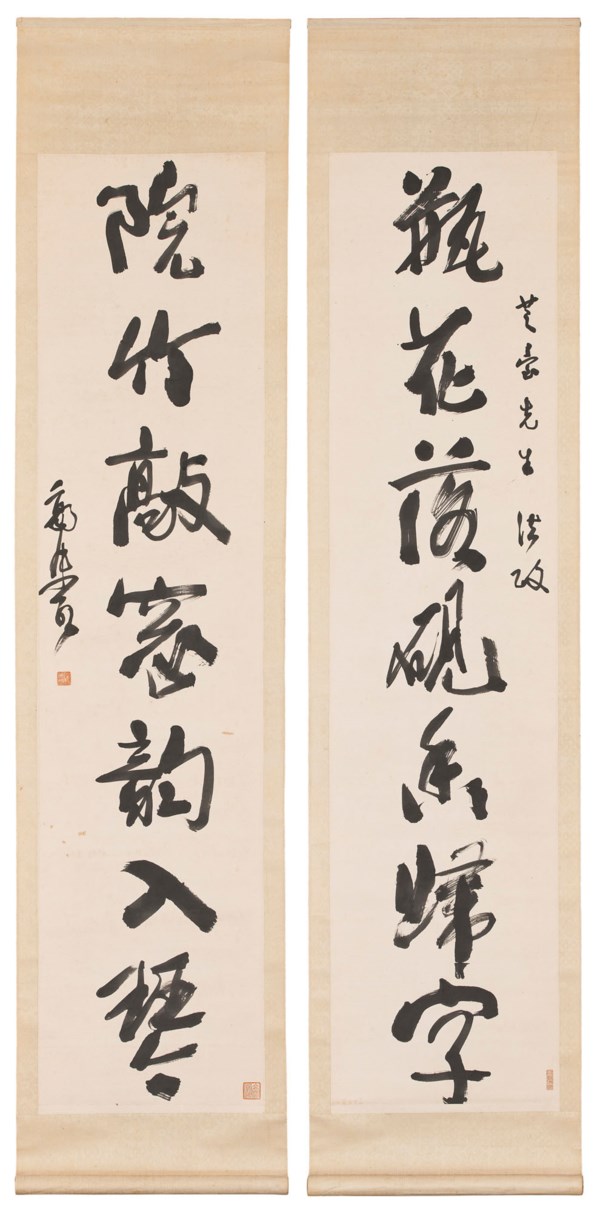 瓶花落硯香歸字
先生 法政
院竹敲窗韵入琴